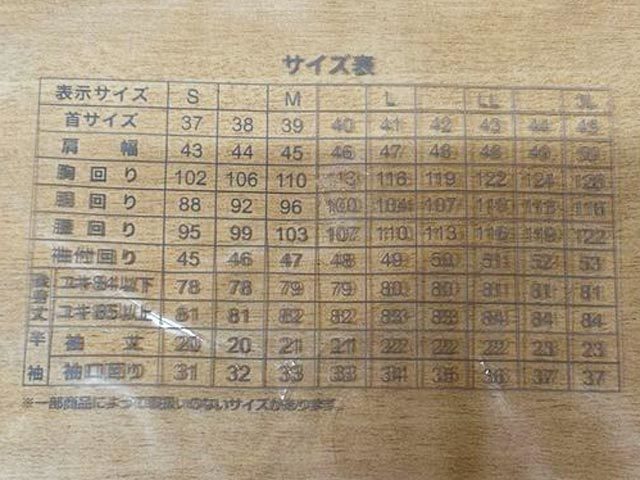 サイズ表
表示サイズ S M L LL 3L
首サイズ 37 38 39 40 41 42 43 44 45
肩幅 43 44 45 46 47 48 49
胸回り 102 106 110 113 116 119 122 124 126
胴回り 88 92 96 100 104 107 116
腰回り 95 99 103 107 110 113 116 119 122
袖付回り 45 46 47 48 49 50 51 52 53
ユキ84以下 78 78 79 79 80 80 81 81 81
丈 ユキ85以上 81 81 82 82 83 83 84 84 84
半 袖丈 20 20 21 21 22 22 22 23 23
袖 袖口回り 31 32 33 33 34 35 36 37 37
※一部商品によって取扱いのないサイズがあります。